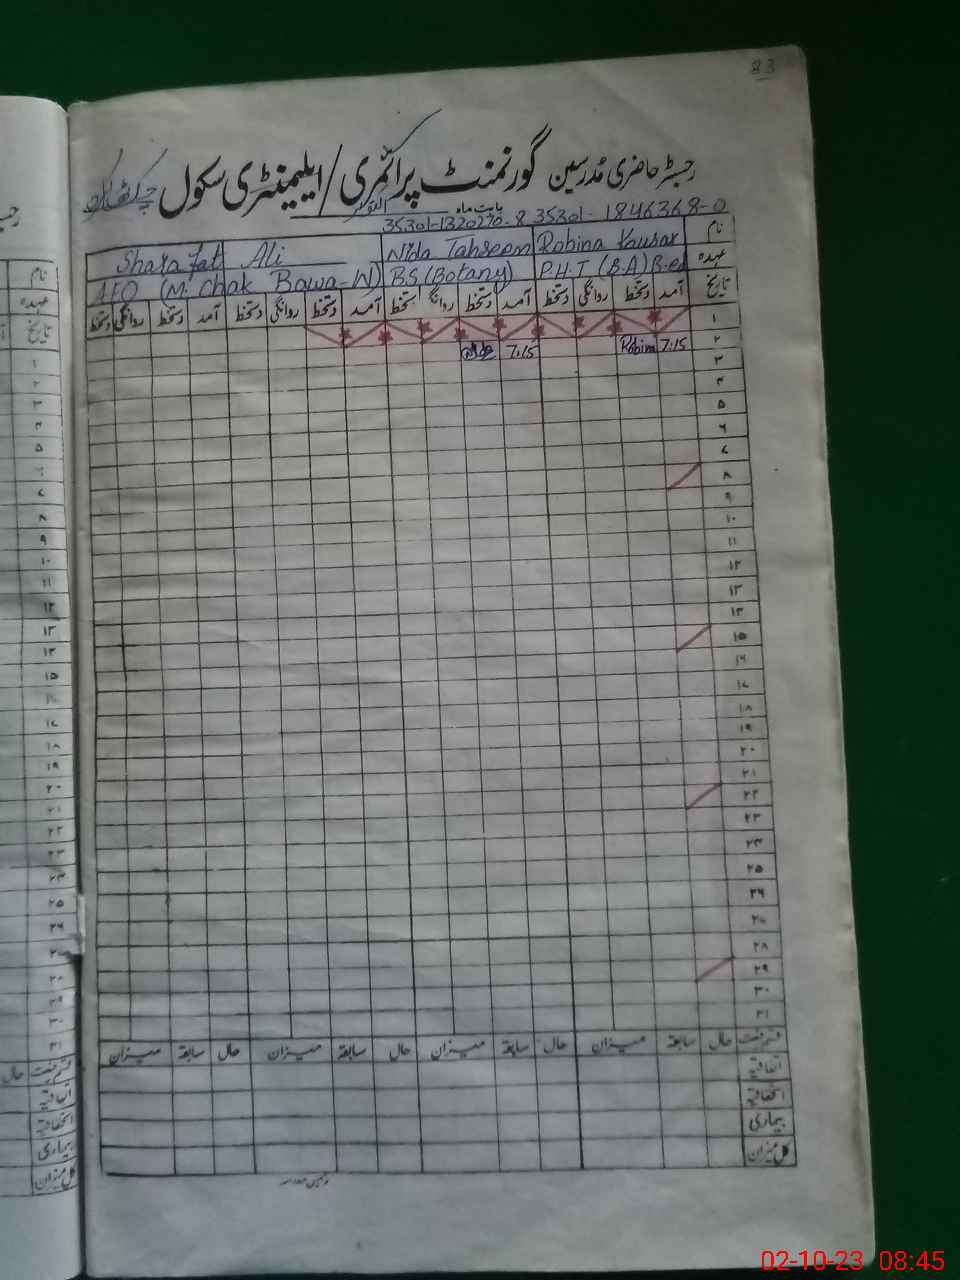 83
رجسٹر حاضری مُدرسین گورنمنٹ پرائمری/ایلیمنٹری سکول
بابت ماہ اکتوبر
35301-1320270-8 35301-1846368-0
نام Robina Kausar Nida Tahseen Sharafat Ali
عہدہ P.H.T (B.A) B.ed BS (Botany) AEO (M. Chak Bawa-W)
تاریخ آمد دستخط روانگی دستخط آمد دستخط روانگی دستخط آمد دستخط روانگی دستخط آمد دستخط روانگی دستخط
۱
۲ 7:15 Robina 7:15 Nida
۳
۴
۵
۶
۷
۸
۹
۱۰
۱۱
۱۲
۱۳
۱۴
۱۵
۱۶
۱۷
۱۸
۱۹
۲۰
۲۱
۲۲
۲۳
۲۴
۲۵
۲۶
۲۷
۲۸
۲۹
۳۰
۳۱
قسم رخصت حال سابقہ میزان حال سابقہ میزان حال سابقہ میزان حال سابقہ میزان
اتفاقیہ
استحقاقیہ
بیماری
کل میزان
02-10-23 08:45